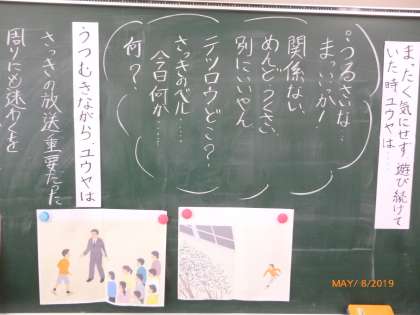 まったく気にせず遊び続けて
いた時、ユウヤは…
うるさいな…
まっいっか！
関係ない、
めんどうくさい、
別にいいやん、
テツロウどこ？…
さっきのベル……
今日何か……
何？
うつむきながら、ユウヤは
さっきの放送重要だった
周りにも迷わくを
MAY/ 8/2019